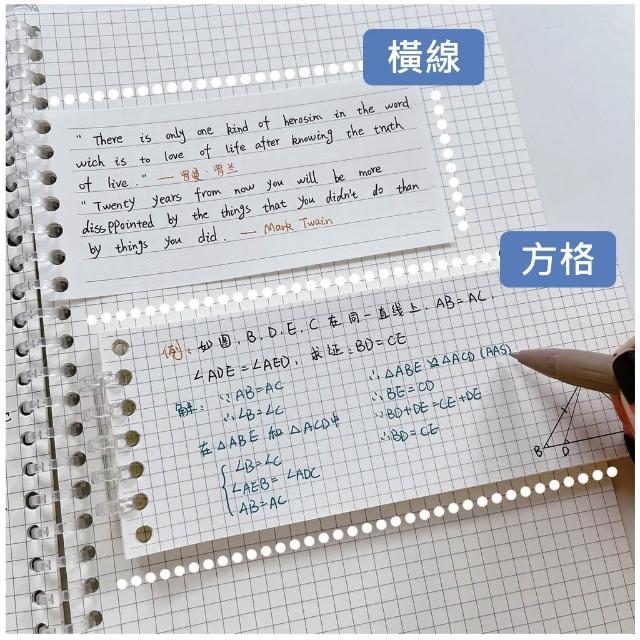 橫線
" There is only one kind of herosim in the word
wich is to love of life after knowing the truth
of live . " — 罗曼 · 罗兰
" Twenty years from now you will be more
dissppointed by the things that you didn't do than
by things you did . — Mark Twain
方格
例: 如图, B, D, E, C 在同一直线上, AB=AC,
∠ADE=∠AED, 求证: BD=CE
解: ∵AB=AC
∴∠B=∠C
在△ABE 和 △ACD中
∠B=∠C
∠AEB=∠ADC
AB=AC
∴△ABE≌△ACD (AAS)
∴BE=CD
∵BD+DE=CE+DE
∴BD=CE
B D